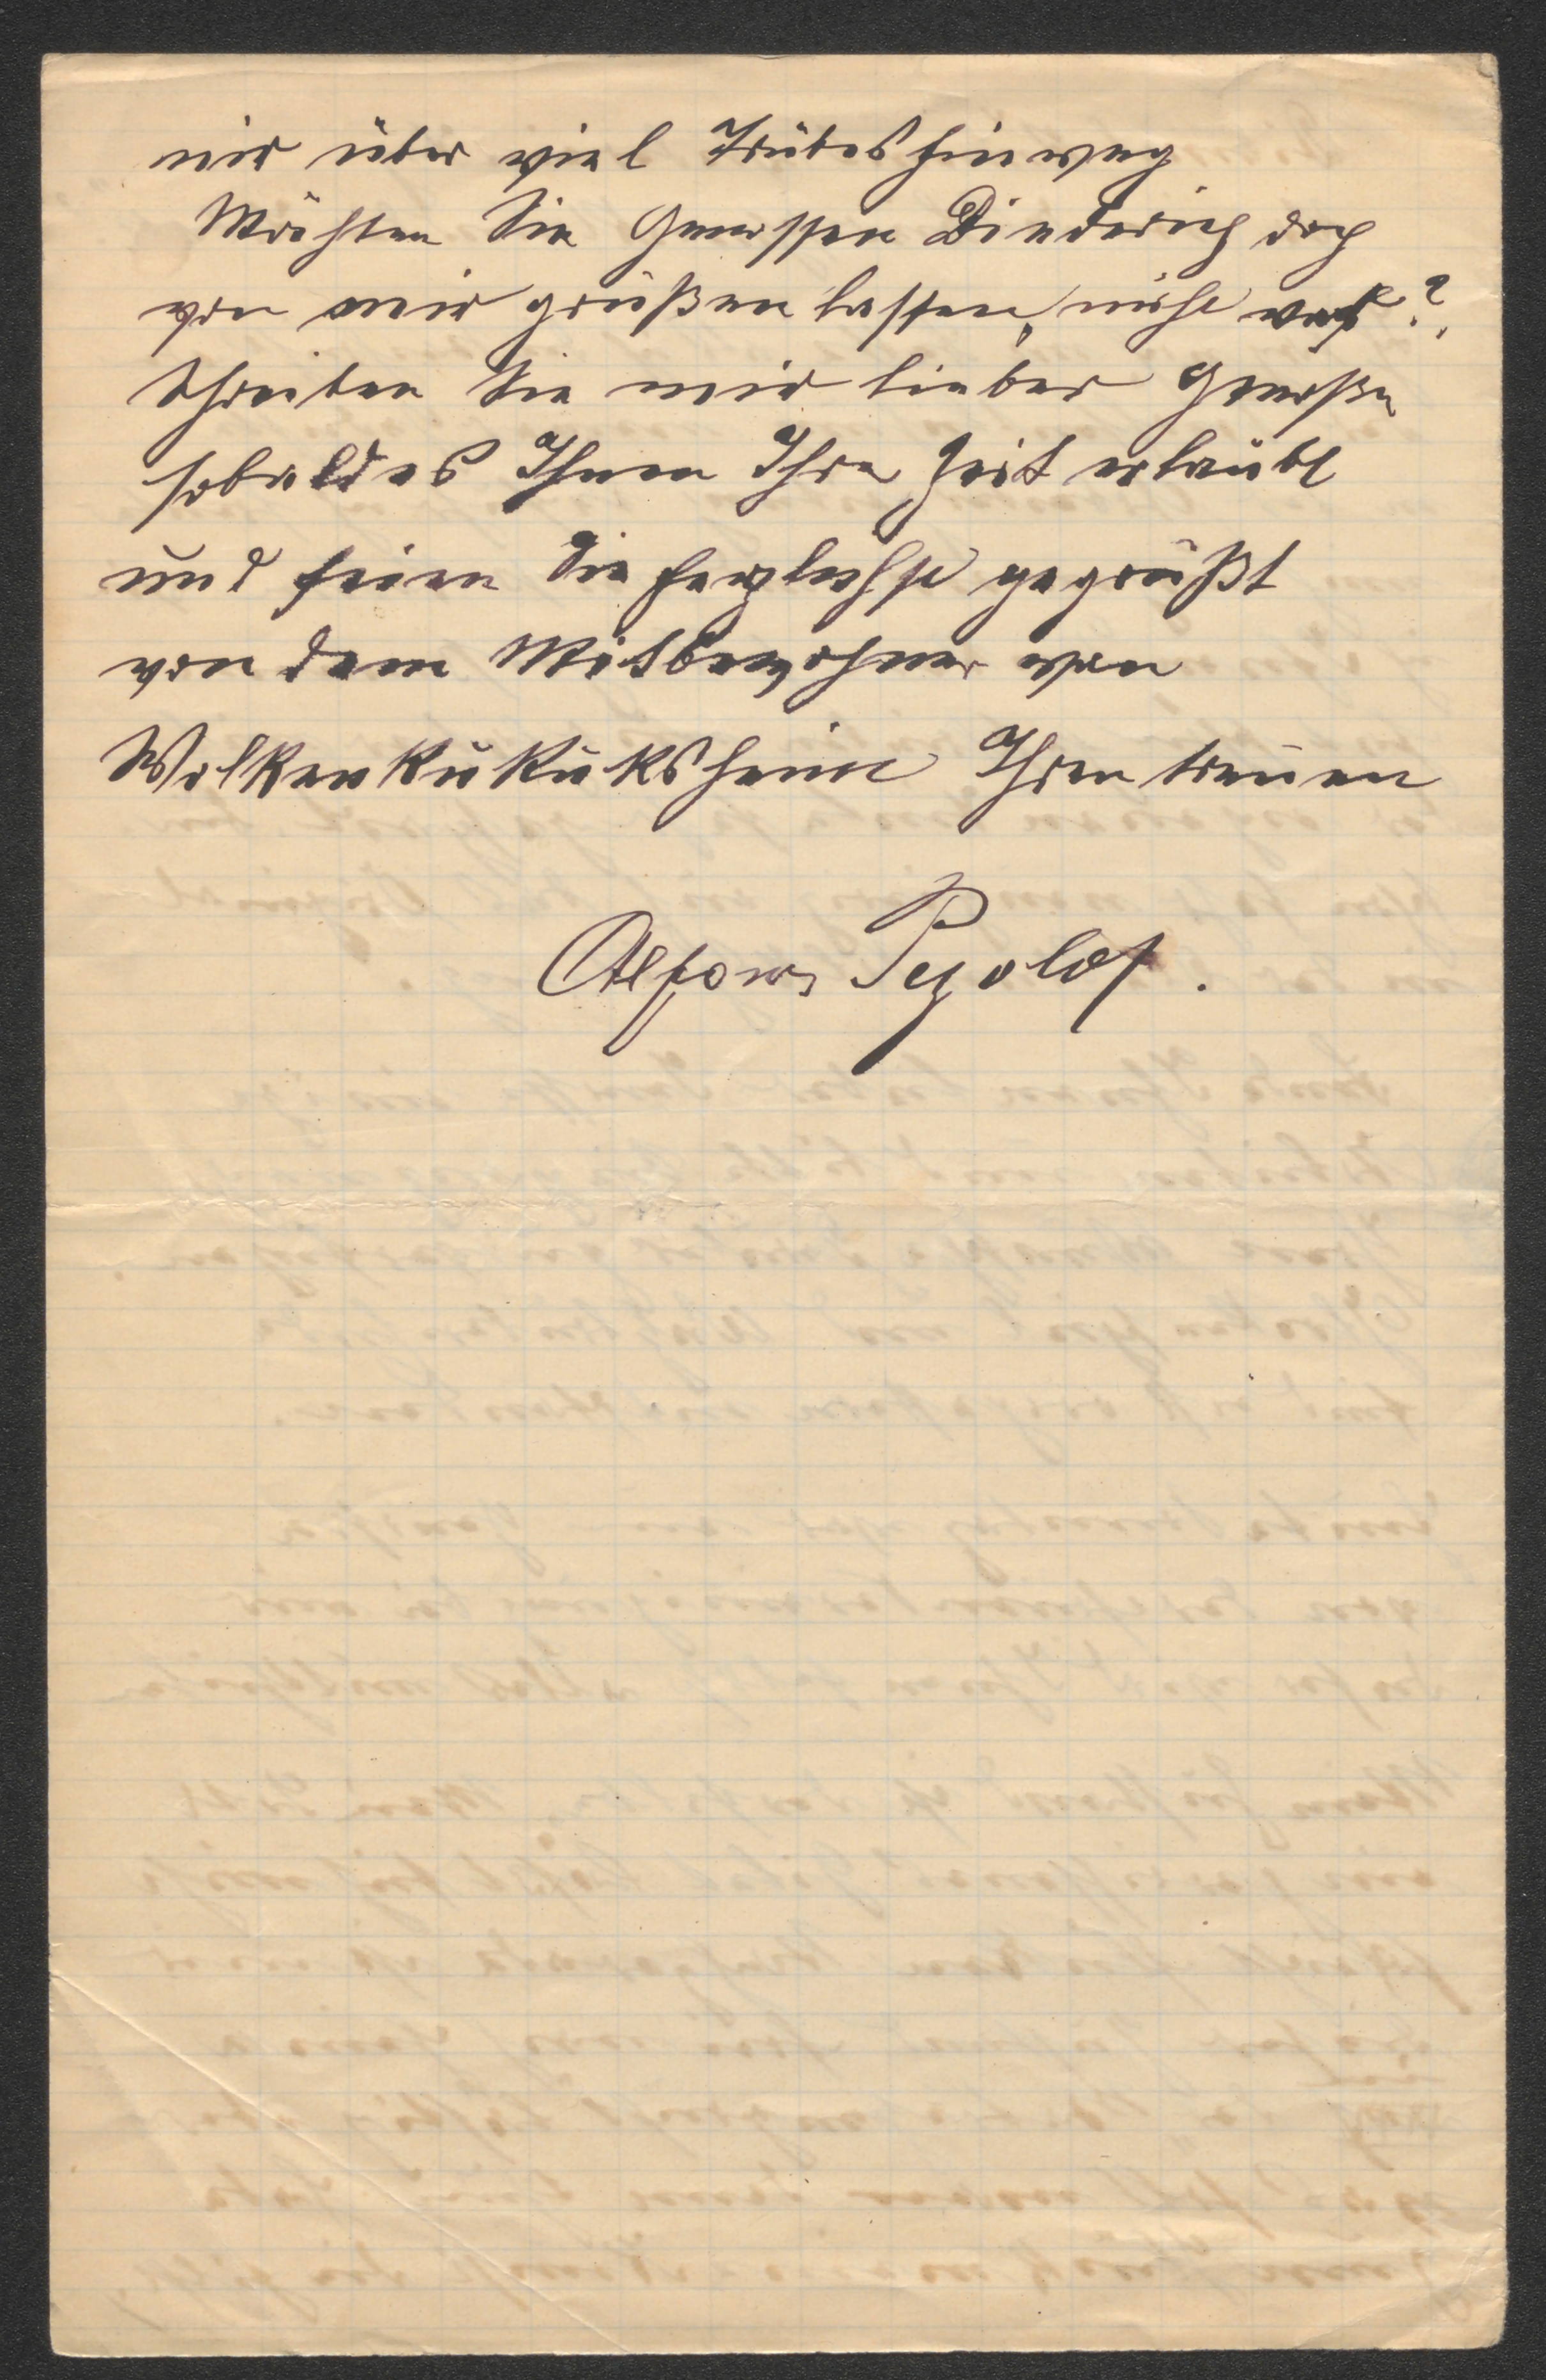 mir über viel Trübes hinweg
Möchten Sie Genossen Diederich doch
von mir grüßen lassen, nicht wahr?
Schreiben Sie mir lieber Genosse
sobald es Ihnen Ihre Zeit erlaubt
und seien Sie herzlichst gegrüßt
von dem Mitbewohner von
Wolkenkukuksheim Ihren treuen
Alfons Pezolds.